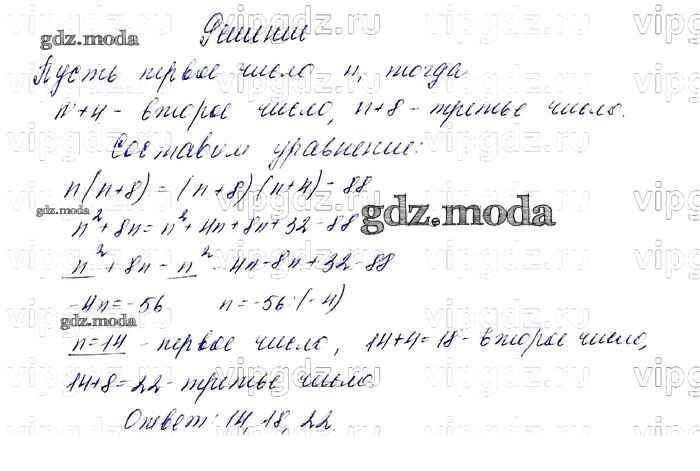 Решение
Пусть первое число n, тогда
n+4 - второе число, n+8 - третье число.
Составим уравнение:
n(n+8) = (n+8)(n+4) - 88
n²+8n = n²+4n+8n+32-88
n²+8n - n² - 4n-8n+32-88
-4n=-56 n=-56:(-4)
n=14 - первое число, 14+4=18 - второе число,
14+8=22 - третье число.
Ответ: 14, 18, 22.
gdz.moda
gdz.moda
gdz.moda
gdz.moda
vipgdz.ru